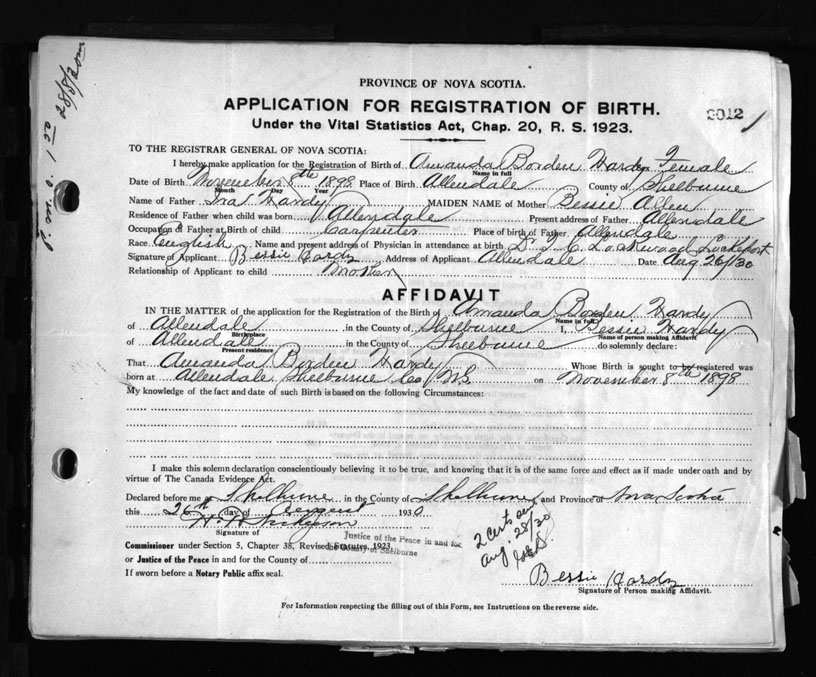 28/8/30
PROVINCE OF NOVA SCOTIA.
APPLICATION FOR REGISTRATION OF BIRTH.
2012
Under the Vital Statistics Act, Chap. 20, R. S. 1923.
TO THE REGISTRAR GENERAL OF NOVA SCOTIA:
I hereby make application for the Registration of Birth of Amanda Borden Hardy Female
Name in full
Date of Birth November 8th 1898 Place of Birth Allendale County of Shelburne
Month Day Year
Name of Father Ira Hardy MAIDEN NAME of Mother Bessie Allen
Residence of Father when child was born Allendale Present address of Father Allendale
Occupation of Father at Birth of child Carpenter Place of birth of Father Allendale
Race English Name and present address of Physician in attendance at birth Dr. Lockwood Lockeport
Signature of Applicant Bessie Hardy Address of Applicant Allendale Date Aug 26/30
Relationship of Applicant to child Mother
AFFIDAVIT
IN THE MATTER of the application for the Registration of the Birth of Amanda Borden Hardy
Name in full
of Allendale in the County of Shelburne I, Bessie Hardy
Birthplace Name of person making Affidavit
of Allendale in the County of Shelburne do solemnly declare:
Present residence
That Amanda Borden Hardy Whose Birth is sought to be registered was
born at Allendale Shelburne Co N.S. on November 8th 1898
My knowledge of the fact and date of such Birth is based on the following Circumstances:
I make this solemn declaration conscientiously believing it to be true, and knowing that is of the same force and effect as if made under oath and by
virtue of The Canada Evidence Act.
Declared before me at Shelburne in the County of Shelburne and Province of Nova Scotia
this 26th day of August 1930
Signature of
Justice of the Peace in and for
the County of Shelburne
Commissioner under Section 5, Chapter 38, Revised Statutes, 1923
or Justice of the Peace in and for the County of
If sworn before a Notary Public affix seal.
2 Certs
Aug. 28/30
Bessie Hardy
Signature of Person making Affidavit.
For Information respecting the filling out of this Form, see Instructions on the reverse side.